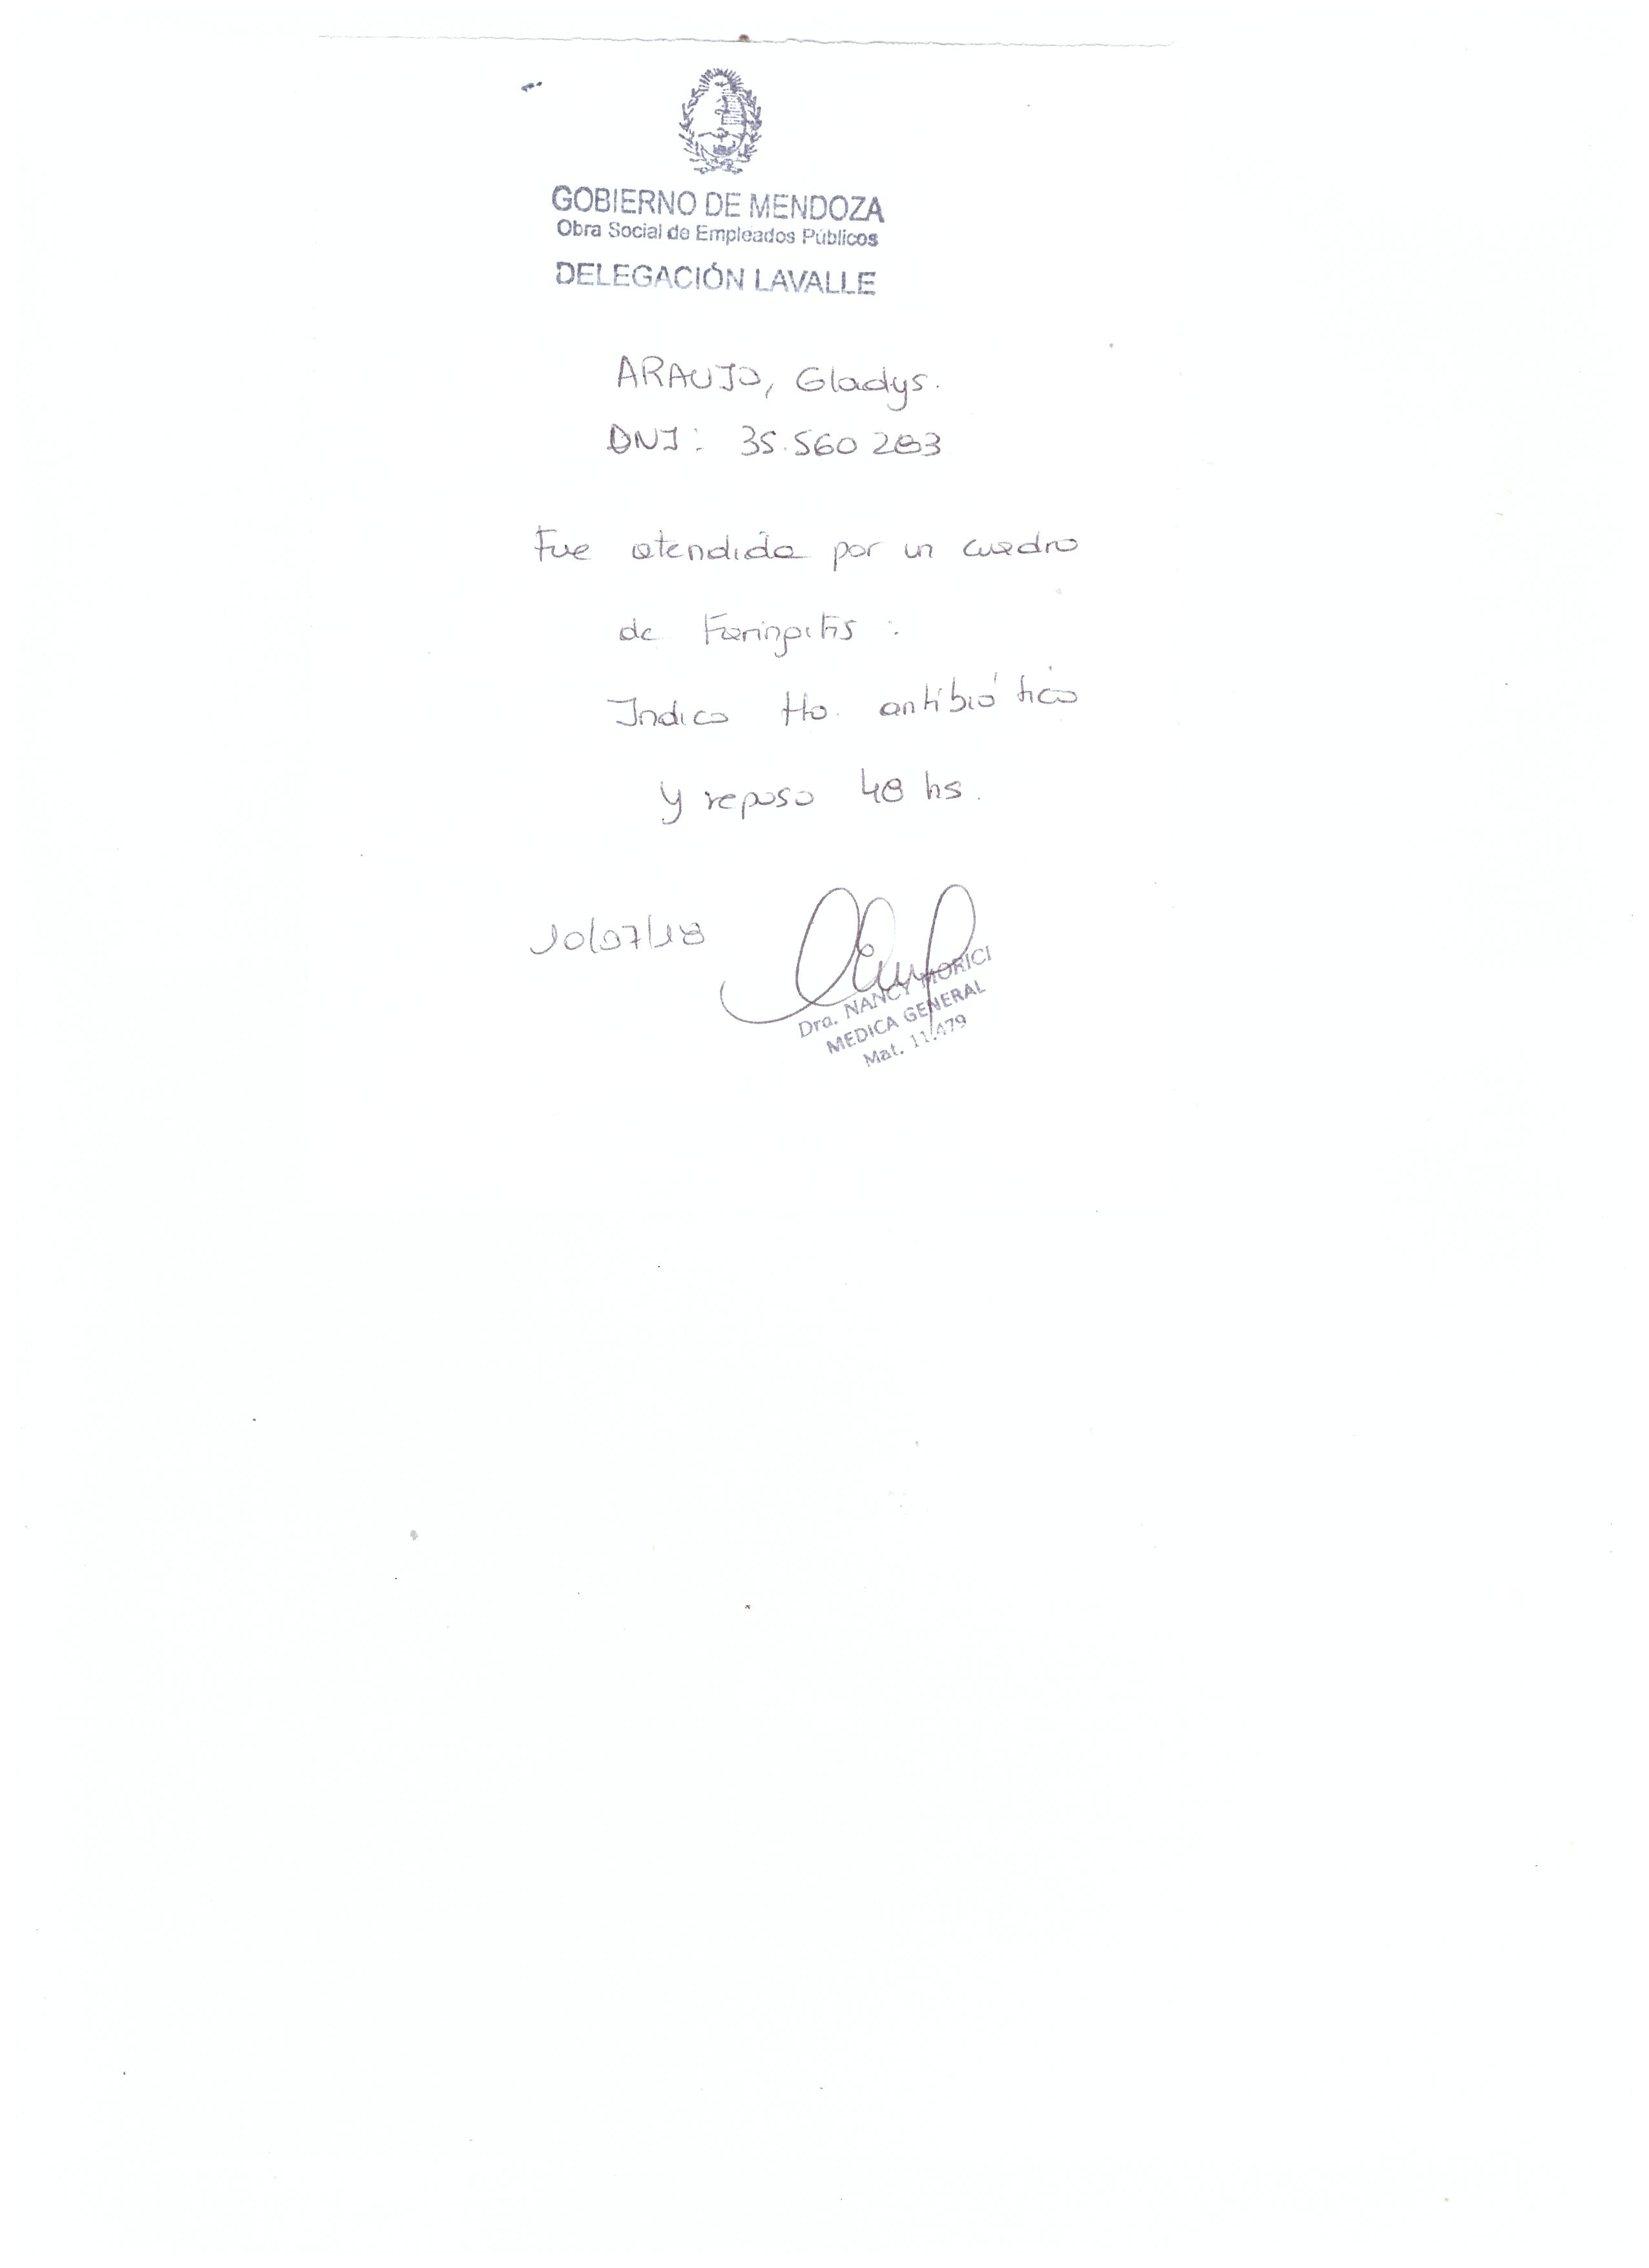 GOBIERNO DE MENDOZA
Obra Social de Empleados Públicos
DELEGACIÓN LAVALLE
ARAUJO, Gladys.
DNI: 35.560 283
Fue atendida por un cuadro
de Faringitis :
Indico tto. antibiótico
y reposo 48 hs.
10/07/18
Dra. NANCY MORICI
MEDICA GENERAL
Mat. 11.479